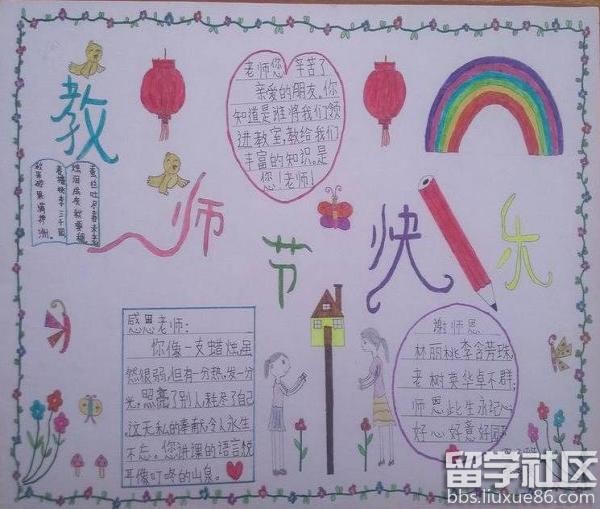 教
师
节
快
乐
老师您辛苦了
亲爱的朋友,你
知道是谁将我们领
进教室,教给我们
丰富的知识.是
您!老师!
春蚕吐尽春未老
烛泪成灰秋更稠
春播桃李三千圃
感恩老师:
你像一支蜡烛虽
然很弱,但有一分热,发一分
光,照亮了别人,耗尽了自己
这无私的奉献,令人永生
不忘。您讲课的语言悦
耳像叮咚的山泉。
谢师恩
林丽桃李含芳珠,
老树英华卓不群,
师恩此生永记心,
好心好意好园
留学社区
bbs.liuxue86.com